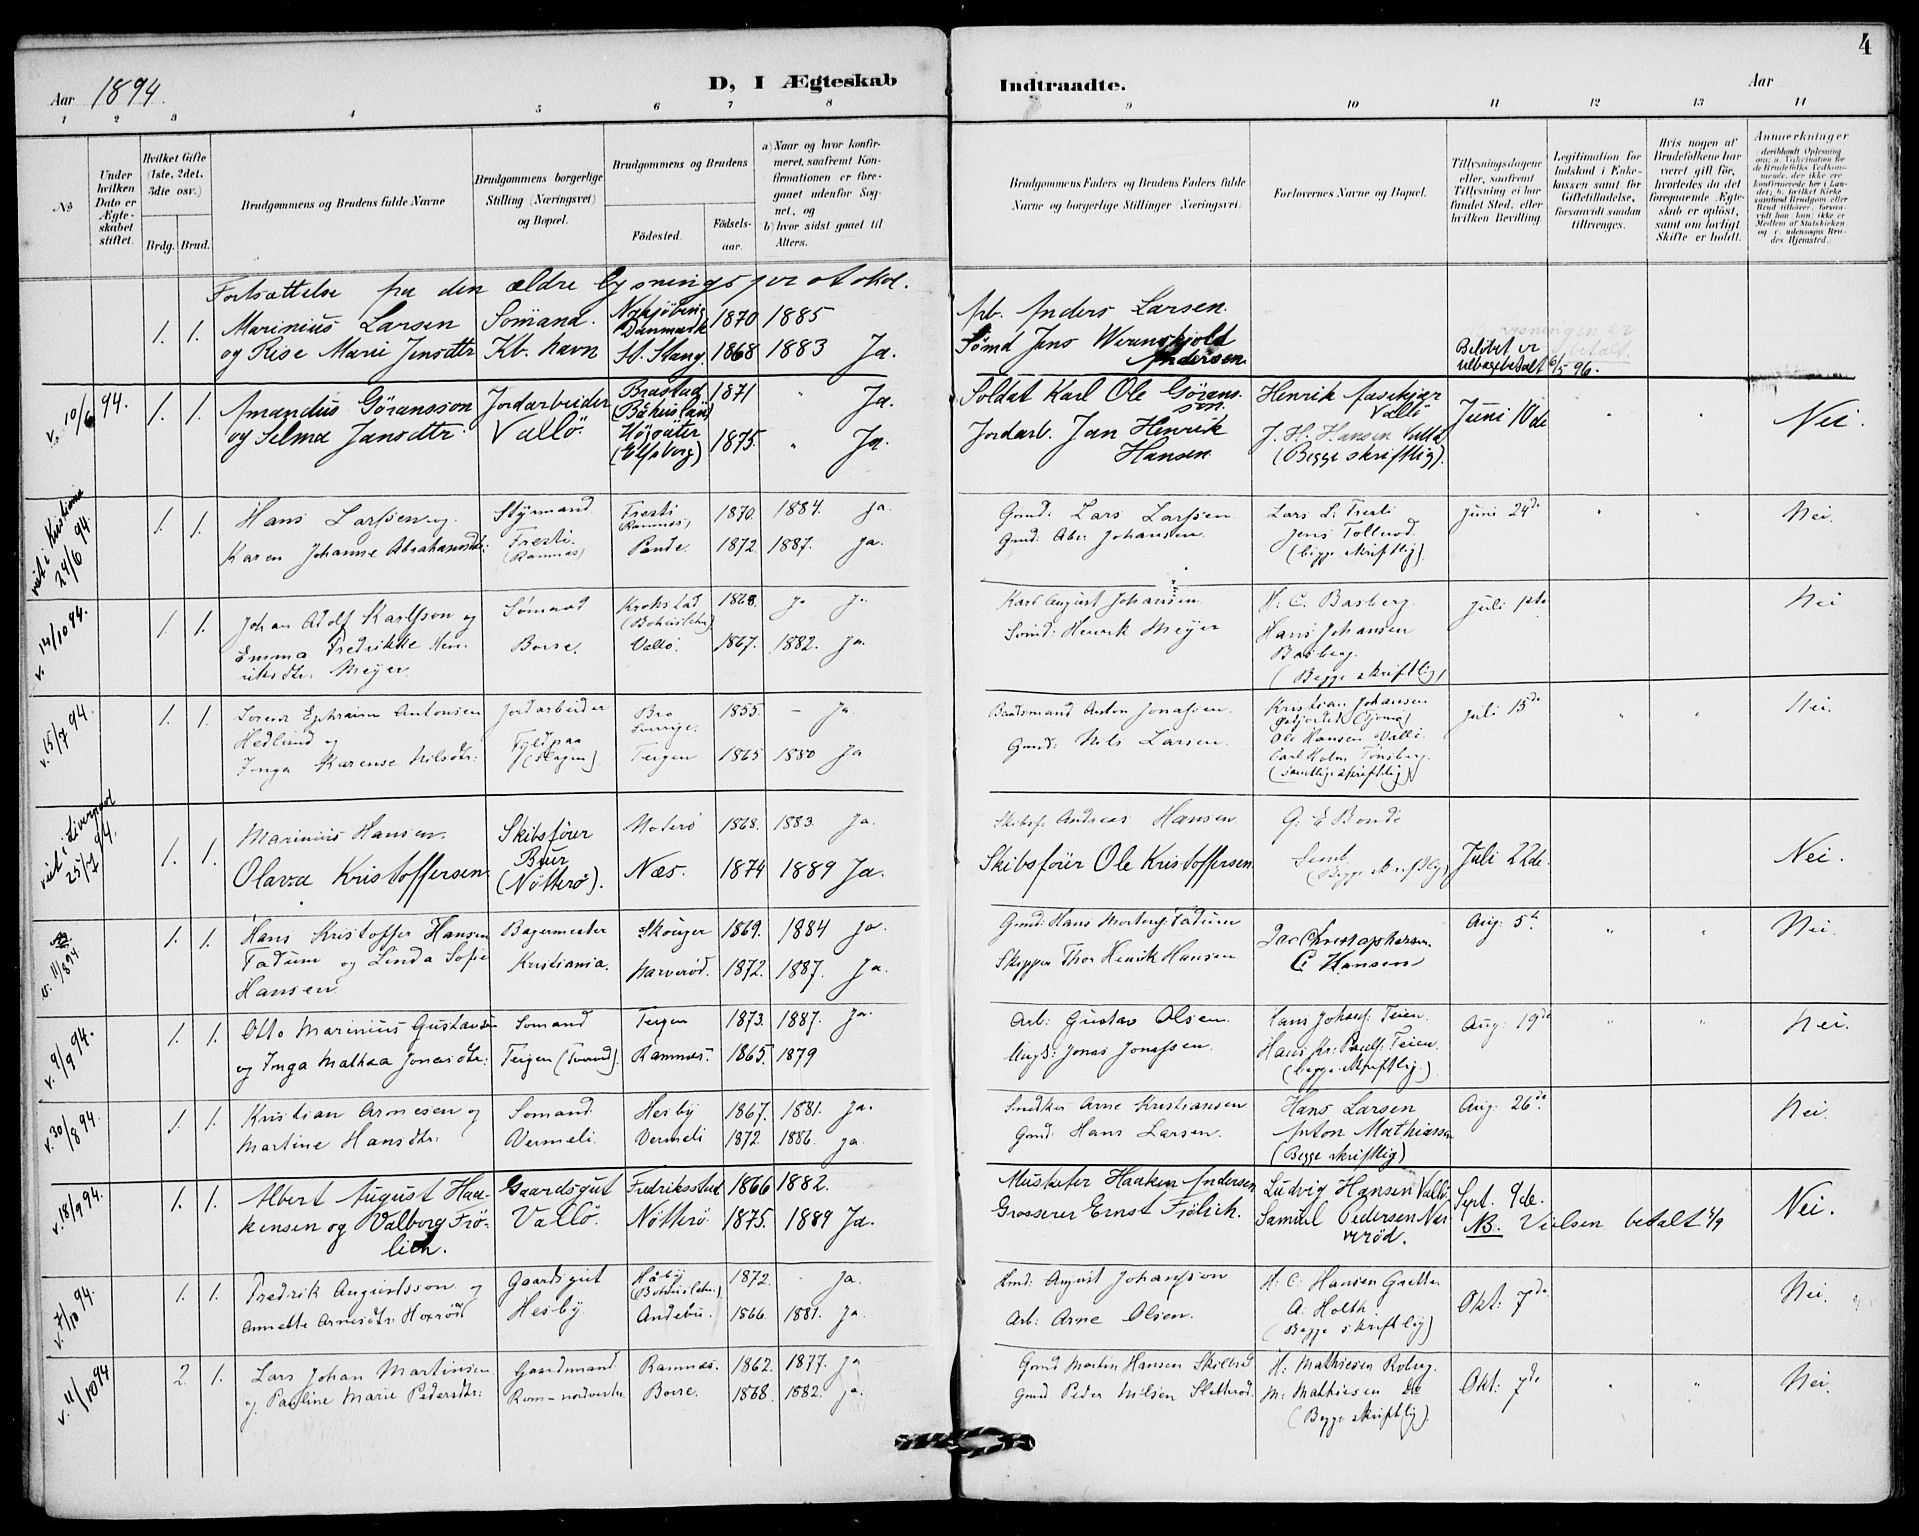 Aar 1894.
D, I Ægteskab
Indtraadte.
Aar
4
1 2 3 4 5 6 7 8 9 10 11 12 13 14
No
Under hvilken Dato er Ægteskabet stiftet.
Hvilket Gifte (1ste, 2det, 3die osv.)
Brdg. Brud.
Brudgommens og Brudens fulde Navne
Brudgommens borgerlige Stilling (Næringsvei) og Bopæl.
Brudgommens og Brudens
Fødested.
Fødselsaar.
a) Naar og hvor konfirmeret, saafremt Konfirmationen er foregaaet udenfor Sognet, og
b) hvor sidst gaaet til Alters.
Brudgommens Faders og Brudens Faders fulde Navne og borgerlige Stillinger (Næringsvei.
Forlovernes Navne og Bopæl.
Tillysningsdagene eller, saafremt Tillysning ei har fundet Sted, efter hvilken Bevilling.
Legitimation for Indskud i Enkekassen samt for Giftetilladelse, forsaavidt saadan tiltrænges.
Hvis nogen af Brudefolkene har været gift før, hvorledes da det foregaaende Ægteskab er opløst, samt om lovligt Skifte er holdt.
Anmerkninger
Fortsættelse fra den ældre lysningsprotokol.
1. 1. Marinius Larsen Sømand. Nykjøbing Danmark 1870 1885 Arb. Anders Larsen.
og Rise Marie Jensdtr Kb.havn St. Slang. 1868 1883 Ja. Sømd Jens Wennskjold Andersen
Beløbet er tilbagebetalt 6/5 96.
v. 10/6 94. 1. 1. Amandus Göransson Jordarbeider Brastad (Båhuslän) 1871 " Ja. Soldat Karl Ole Göransson. Henrik Aaskjær Vallö Juni 10de " " Nei.
og Selma Jansdtr. Vallö. Högsäter (Elfsborg) 1875. " Ja. Jordarb. Jan Henrik Hansen J. H. Hansen Vallö (Begge skriftlig).
viet i Kristiania 24/6 94. 1. 1. Hans Larssen og Styrmand. Fresti (Ramnæs) 1870. 1884. ja. Gmd: Lars Larssen Lars L. Fresti Juni 24de " " Nei.
Karen Johanne Abrahamsdtr: Fresti. (Ramnæs) Pande. 1872. 1887. ja. Gmd: Abr. Johansen. Jens Tollerod. (begge skriftlig).
v. 14/10 94. 1. 1. Johan Adolf Karlsson og Sømand Krokstad (Bohuslehn) 1868. ja Karl August Johansen H. C. Basberg. Juli 1ste. Nei
Emma Fredrikke Henriksdtr. Meyer. Borre. Vallö. 1867. 1882. ja. Sømd: Henrik Meyer Hans Johansen Basberg. (Begge skriftlig)
v. 15/7 94. 1. 1. Lorens Ephraim Antonsen Hedlund og Jordarbeider Bro Sverige. 1855. – Ja. Baadsmand Anton Jonassen. Kristian Johansen Juli 15de " " Nei.
Inga Karense Nilsdtr: Fyldpaa (Slagen). Teigen 1865 1880 Ja Gmd: Nils Larsen. Ole Hansen Vallö. Carl Holm Tönsberg. (samtlige skriftlig)
viet i Liverpool 25/7 94. 1. 1. Marinius Hansen. Skibsfører Moterö 1868. 1883. Ja. Skibsf. Andreas Hansen. G. E Bonde Juli 22de. Nei.
Olava Kristoffersen. Buer (Nötterö). Næs. 1874 1889 Ja. Skibsförer Ole Kristoffersen. Semb. (Begge skriftlig)
v. 11/8 94 1. 1. Hans Kristoffer Hansen Fadum og Linda Sofie Hansen Bagermester Skouger 1869. 1884 ja. Gmd: Hans Morberg: Fadum Jac Christophersen Aug: 5te " " Nei
Kristiania. Narverød. 1872. 1887. Ja. Skipper Thor Henrik Hansen C Hansen
v. 9/9 94. 1. 1. Otto Marinius Gustavsen Sömand Teigen 1873. 1887. Ja. Arb: Gustav Olsen. Hans Johans: Teien. Aug: 19de " " Nei.
og Inga Mathea Jonasdtr: Teigen (Torød). Ramnæs. 1865. 1879 Jonas Jonassen. Hans Kr: Pauls: Teien. (begge skriftlig)
v. 30/8 94. 1. 1. Kristian Arnesen og Sømand. Hesby 1867. 1881. Ja. Snedker Arne Kristiansen. Hans Larsen Aug: 26de Nei.
Martine Hansdtr: Vermeli. Vermeli 1872. 1886. ja. Gmd: Hans Larsen. Anton Mathiassen (Begge skriftlig)
v. 18/9 94. 1. 1. Albert August Haakensen og Valborg Frölich. Gaardsgut Fredriksstad 1866 1882. Musketer Haaken Andersen Ludvig Hansen Vallö. Sept. 9de. Nei.
Vallö. Nötterö 1875. 1889 Ja. Grosserer Ernst Frölich. Samuel Pedersen Narverød. NB. Vielsen betalt 4/9
v. 7/10 94. 1. 1. Fredrik Augustsson og Gaardsgut Håby (Bohuslehn) 1872. – Ja. August Johansson H. C. Hansen Okt: 7de Nei.
Annette Arnesdtr. Hoxrød Hesby. Andebu. 1866. 1881. Ja Arb: Arne Olsen. A. Holth. (Begge skriftlig)
v. 11/10 94 2. 1. Lars Johan Martinsen Gaardmand Ramnæs. 1862. 1877. Ja Gmd Martin Hansen H: Mathiesen Roberg. Okt: 7de " " Nei.
og Pauline Marie Pedersdtr: Rom-nordvestre. Borre. 1868. 1882. ja. Gmd Peder Nilsen Sletterød. M: Mathiesen Do (Begge skriftlig).